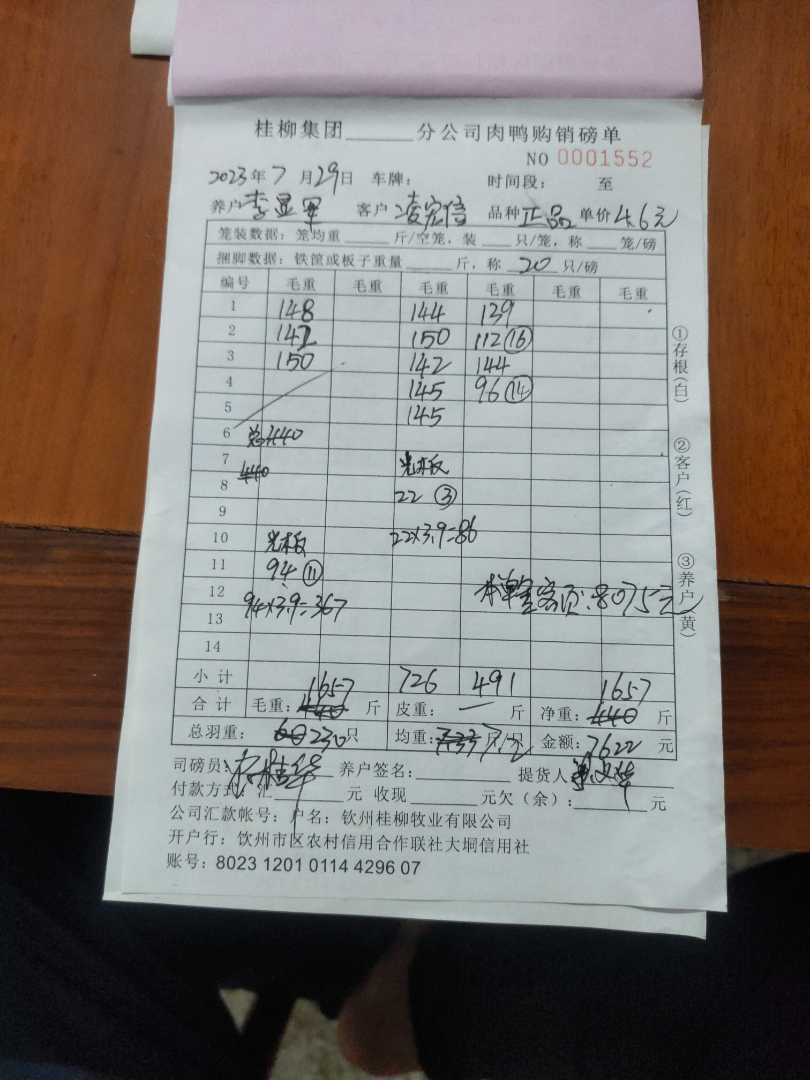 桂柳集团______分公司肉鸭购销磅单
NO 0001552
2023年7月29日 车牌： 时间段： 至
养户李显军 客户凌宏信 品种正品 单价4.6元
笼装数据：笼均重____斤/空笼，装____只/笼，称____笼/磅
捆脚数据：铁筐或板子重量____斤，称 20 只/磅
编号 毛重 毛重 毛重 毛重 毛重 毛重
1 148 144 139
2 142 150 112 ⑯
3 150 142 144
4 145 96 ⑭
5 145
6 总440
7 440 光板
8 22 ③
9
10 光板 22×3.9=86
11 94 ⑪
12 本单客页:8075元
13 94×3.9=367
14
小计 726 491
合计 毛重：1657 440 斤 皮重：— 斤 净重：1657 440 斤
总羽重： 60 230只 均重：7.33 7.2 只 金额：7622 元
司磅员： 养户签名： 提货人
付款方式：汇____元 收现____元欠（余）：____元
公司汇款帐号：户名：钦州桂柳牧业有限公司
开户行：钦州市区农村信用合作联社大垌信用社
账号：8023 1201 0114 4296 07
①存根(白)
②客户(红)
③养户(黄)